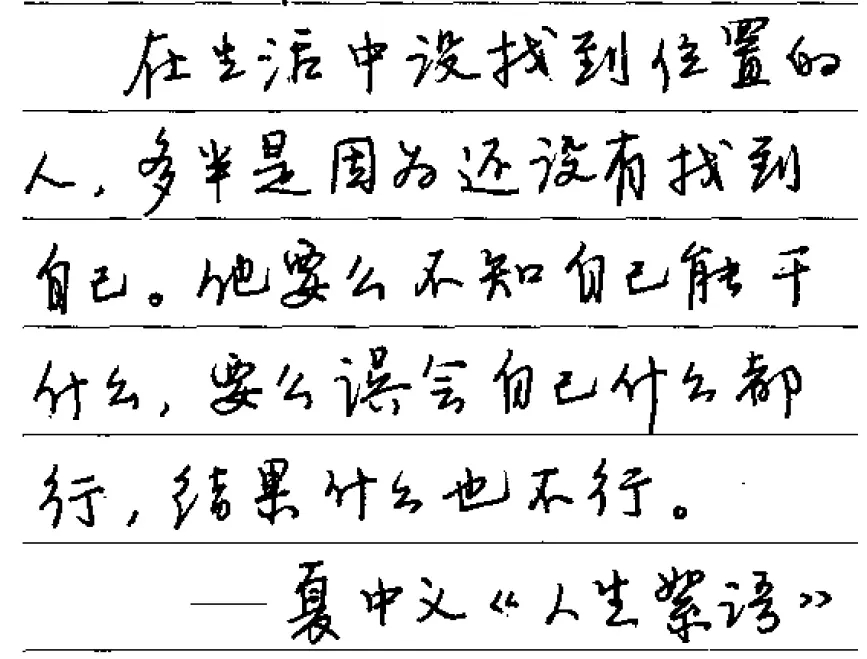 在生活中没找到位置的
人，多半是因为还没有找到
自己。他要么不知自己能干
什么，要么误会自己什么都
行，结果什么也不行。
——夏中义《人生絮语》